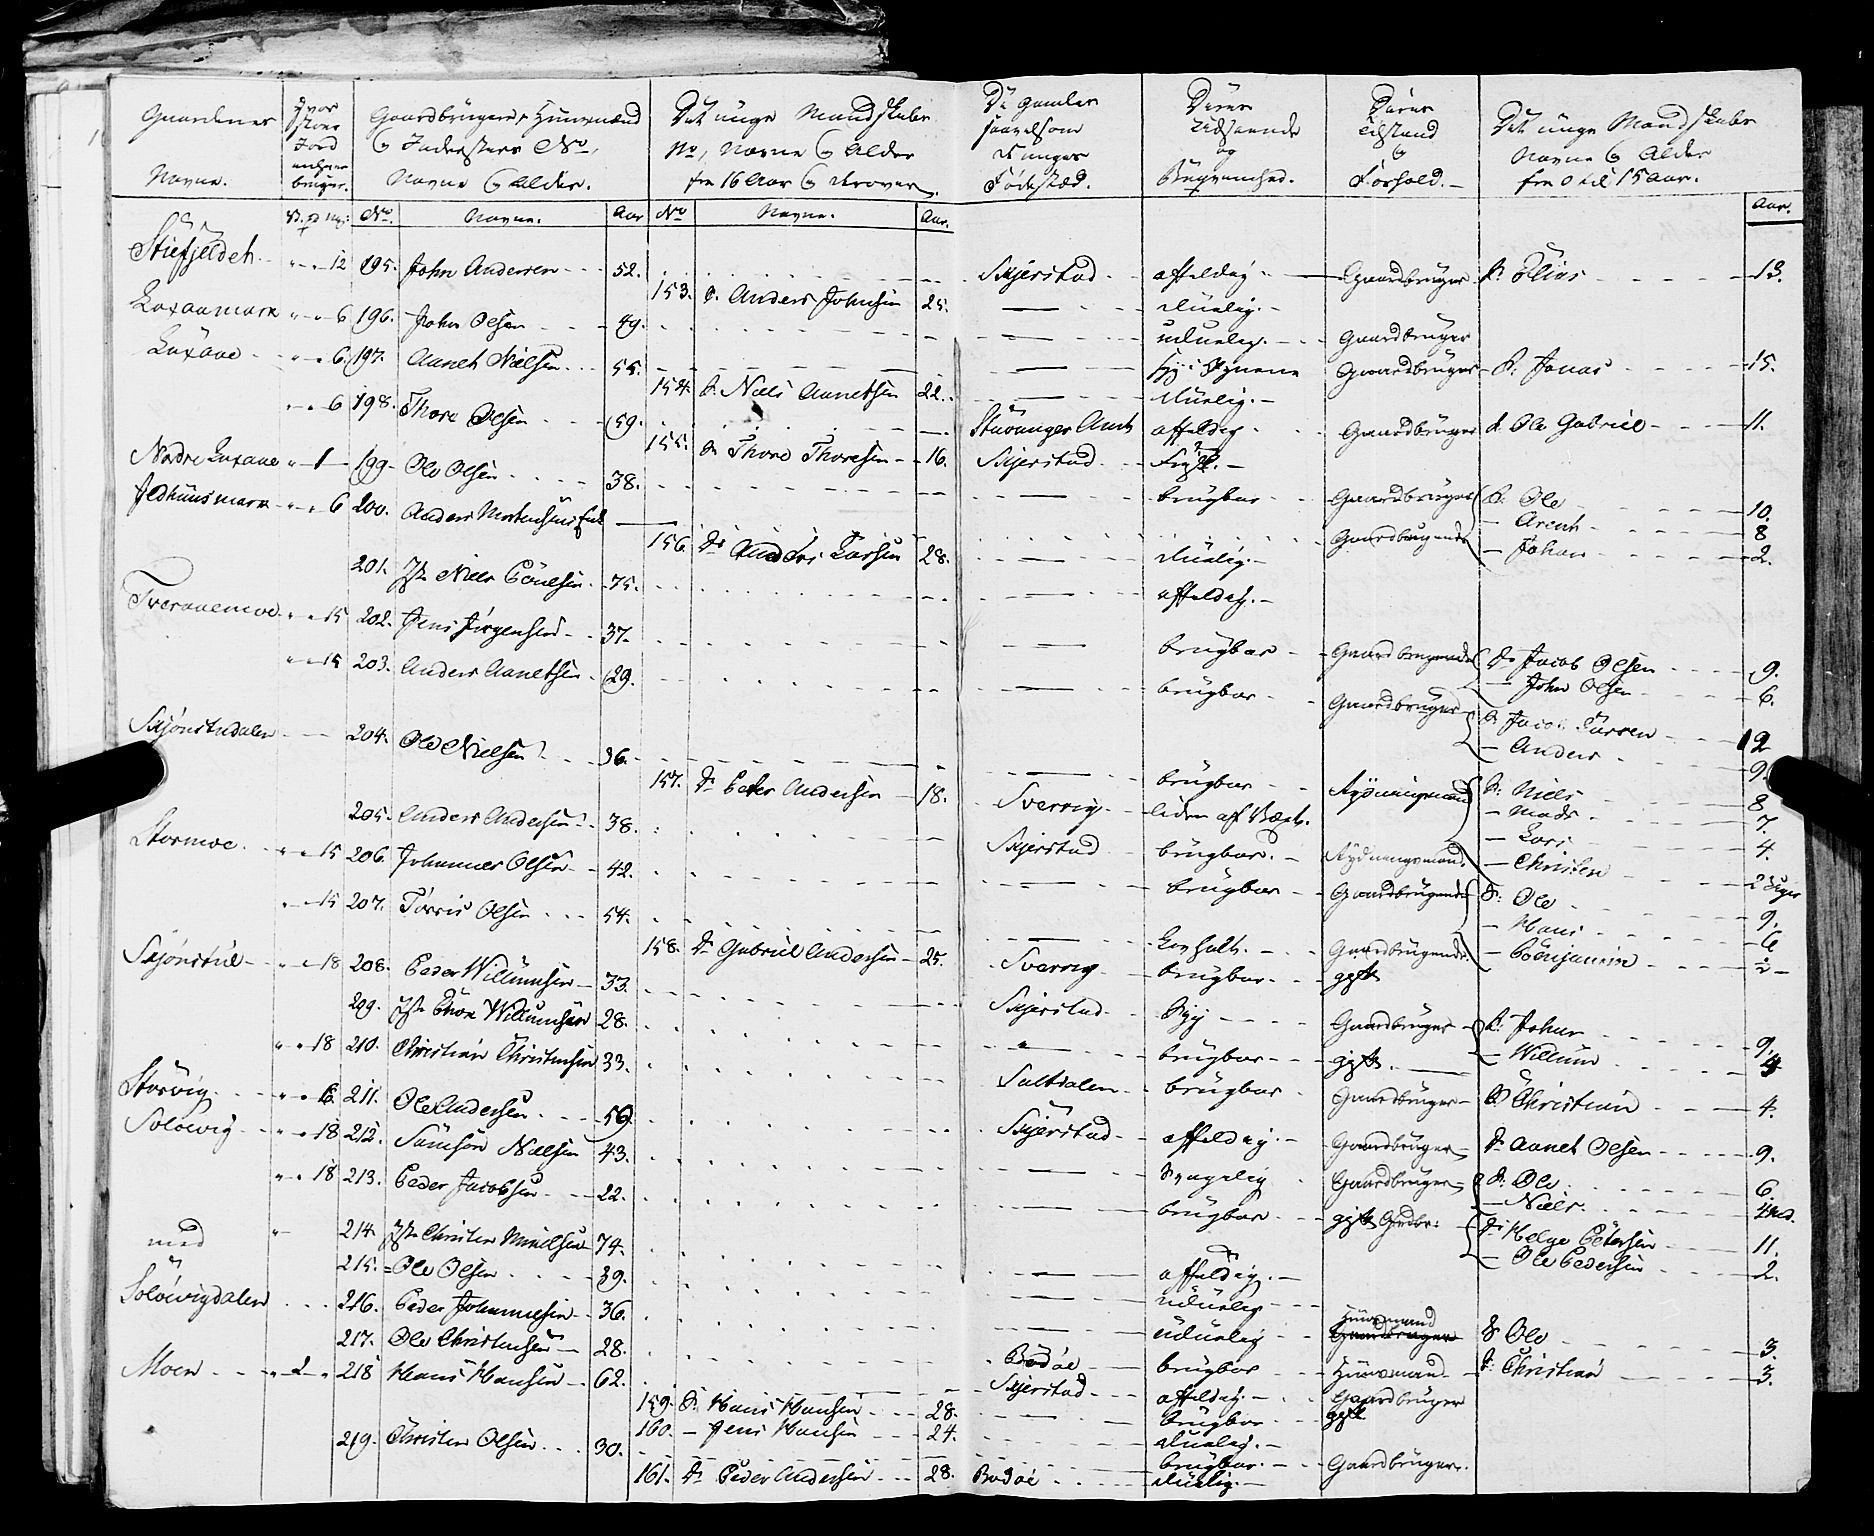 Gaardenes Navne.
Hvor stor Jord enhver bruger.
Gaardbrugere, Huusmænd og Inderster No, Navne og Alder.
Det unge Mandskabs No, Navne og Alder fra 16 Aar og derover.
De gamles saavelsom Unges Fødested.
Deres Udseende og Beqvemhed.
Deres Tilstand og Forhold.
Det unge Mandskabs Navne og Alder fra 0 til 15 Aar.
No Navne. Aar No Navne. Aar. Aar.
Stiefjeldet 12 195. John Andersen 52. Skjerstad affeldig Gaardbruger S. Elias 13.
153. S. Anders Johnsen 25. duelig.
Laxaamark 6 196. John Olsen 49. uduelig. Gaardbruger
Laxaae 6. 197. Aanet Nielsen 55. Gaardbruger S. Jonas 15.
154. S. Niels Aanetsen 22. duelig.
6 198. Thore Olsen 59. Stavanger Amt affeldig Gaardbruger S. Ole Gabriel 11.
155. S. Thore Thoresen 16. Skjerstad
Nordre Laxaae 1 199 Ole Olsen 38. brugbar Gaardbruger S. Ole 10.
Arent 8
Johan 2.
Jldhuusmark 6 200. Anders Mortensens Enke Gaardbrugende
156. Anders Larsen 28. duelig.
201. Niels Poulsen 75. affeldig.
Tveraaemoe 15 202. Jens Jörgensen 37. brugbar Gaardbrugende Jacob Olsen 9.
John Olsen 6.
15 203. Anders Aanetsen 29. brugbar Gaardbruger Jacob Larsen 12
Anders 9.
Skjønstudalen 204. Ole Nielsen 36. brugbar Rydningsmand S. Niels 8
Mads 7.
Lars 4.
Christen 2 Uger
157. Peter Andersen 18. Sverrig
205. Anders Andersen 38. Skjerstad brugbar. Rydningsmand.
Stormoe 15 206. Johannes Olsen 42. brugbar Gaardbrugende S. Ole 9.
Hans 6
Benjamin ½
15 207. Torris Olsen 54. Lovhalt. Gaardbrugende.
158. Gabriel Andersen 25. Sverrig brugbar gift
Skjønstue 18 208. Peder Willumsen 33. Skjerstad Gaardbruger S. Johan 9.
Willum 4
209. Willumsen 28. brugbar gift.
18 210. Christian Christensen 33. Saltdalen brugbar Gaardbruger Christian 4.
Storvig 6. 211. Ole Andersen 59. Skjerstad affeldig. Gaardbruger Aanet Olsen 9.
Soløevig 18 212. Samson Nielsen 43. Svagelig Gaardbruger S. Ole 6.
Niels 4 Md.
18 213. Peder Jacobsen 22. brugbar gift Helge Petersen 11.
Ole Pedersen 2.
214. Christen 74. affeldig.
med 215. Ole Olsen 39. uduelig
Soløevigdalen 216. Peder Johannesen 36. uduelig Huusmand Gaardbruger S. Ole 3.
217. Ole Christensen 28. Bodøe brugbar Huusmand S. Christian 3.
Moen 2 218 Hans Hansen 62. Skjerstad affeldig. Gaardbruger
159. S. Hans Hansen 28. brugbar gift
160. Jens Hansen 24. duelig.
219. Christen Olsen 30. brugbar. Gaardbruger.
161. Peder Andersen 28. Bodøe duelig.